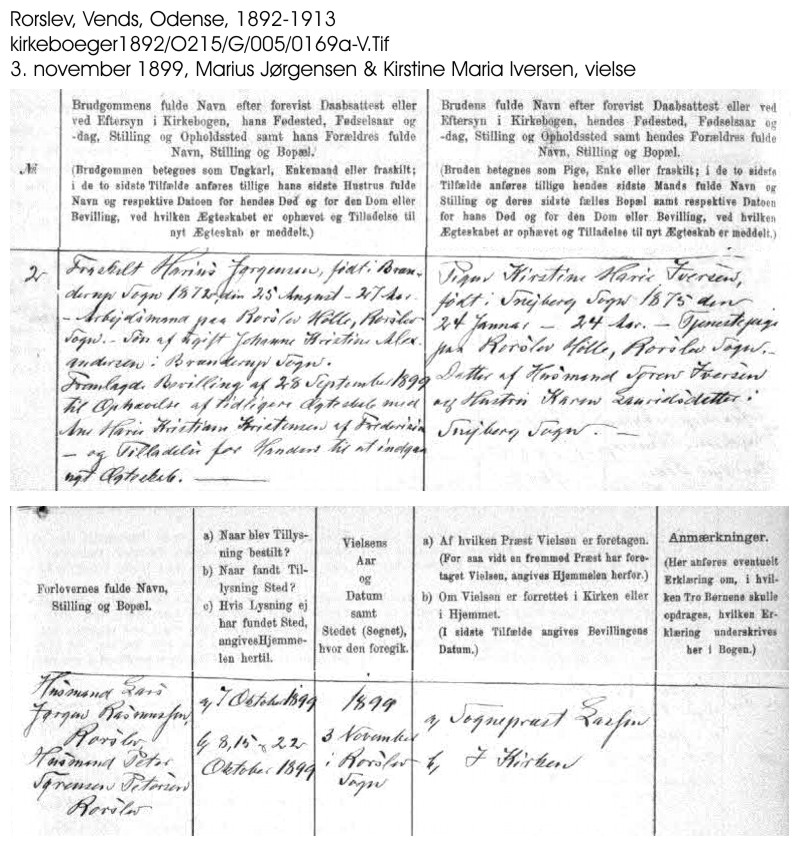 Rorslev, Vends, Odense, 1892-1913
kirkeboeger1892/O215/G/005/0169a-V.Tif
3. november 1899, Marius Jørgensen & Kirstine Maria Iversen, vielse
№
Brudgommens fulde Navn efter forevist Daabsattest eller
ved Eftersyn i Kirkebogen, hans Fødested, Fødselsaar og
-dag, Stilling og Opholdssted samt hans Forældres fulde
Navn, Stilling og Bopæl.
(Brudgommen betegnes som Ungkarl, Enkemand eller fraskilt;
i de to sidste Tilfælde anføres tillige hans sidste Hustrus fulde
Navn og respektive Datoen for hendes Død og for den Dom eller
Bevilling, ved hvilken Ægteskabet er ophævet og Tilladelse til
nyt Ægteskab er meddelt.)
Brudens fulde Navn efter forevist Daabsattest eller ved
Eftersyn i Kirkebogen, hendes Fødested, Fødselsaar og
-dag, Stilling og Opholdssted samt hendes Forældres fulde
Navn, Stilling og Bopæl.
(Bruden betegnes som Pige, Enke eller fraskilt; i de to sidste
Tilfælde anføres tillige hendes sidste Mands fulde Navn og
Stilling og deres sidste fælles Bopæl samt respektive Datoen
for hans Død og for den Dom eller Bevilling, ved hvilken
Ægteskabet er ophævet og Tilladelse til nyt Ægteskab er meddelt.)
2
Fraskilt Marius Jørgensen, født i Bran-
derup Sogn 1872 den 25 August - 27 Aar.
- Arbejdsmand paa Rorslev Mølle, Rorslev
Sogn. - Søn af Ugift Johanne Kirstine Alex-
andersen i Branderup Sogn.
Fremlagde Bevilling af 28 September 1899
til Ophævelse af tidligere Ægteskab med
Ane Marie Kristiane Kristensen af Fredericia
- og Tilladelse for Manden til at indgaa
nyt Ægteskab. -
Pigen Kirstine Marie Iversen,
født i Snejbjerg Sogn 1875 den
24 Januar - 24 Aar. - Tjenestepige
paa Rorslev Mølle, Rorslev Sogn. -
Datter af Husmand Søren Iversen
og Hustru Karen Lauridsdatter i
Snejbjerg Sogn. -
Forlovernes fulde Navn,
Stilling og Bopæl.
a) Naar blev Tillys-
ning bestilt?
b) Naar fandt Til-
lysning Sted?
c) Hvis Lysning ej
har fundet Sted,
angives Hjemme-
len hertil.
Vielsens
Aar
og
Datum
samt
Stedet (Sognet),
hvor den foregik.
a) Af hvilken Præst Vielsen er foretagen.
(For saa vidt en fremmed Præst har fore-
taget Vielsen, angives Hjemmelen herfor.)
b) Om Vielsen er forrettet i Kirken eller
i Hjemmet.
(I sidste Tilfælde angives Bevillingens
Datum.)
Anmærkninger.
(Her anføres eventuelt
Erklæring om, i hvil-
ken Tro Børnene skulle
opdrages, hvilken Er-
klæring underskrives
her i Bogen.)
Husmand Lars
Jørgen Rasmussen,
Rorslev
Husmand Peter
Sørensen Petersen
Rorslev
a, 7 Oktober 1899
b, 8, 15 & 22
Oktober 1899
1899
3 November
i Rorslev
Sogn
a, Sognepræst Lassen
b, I Kirken